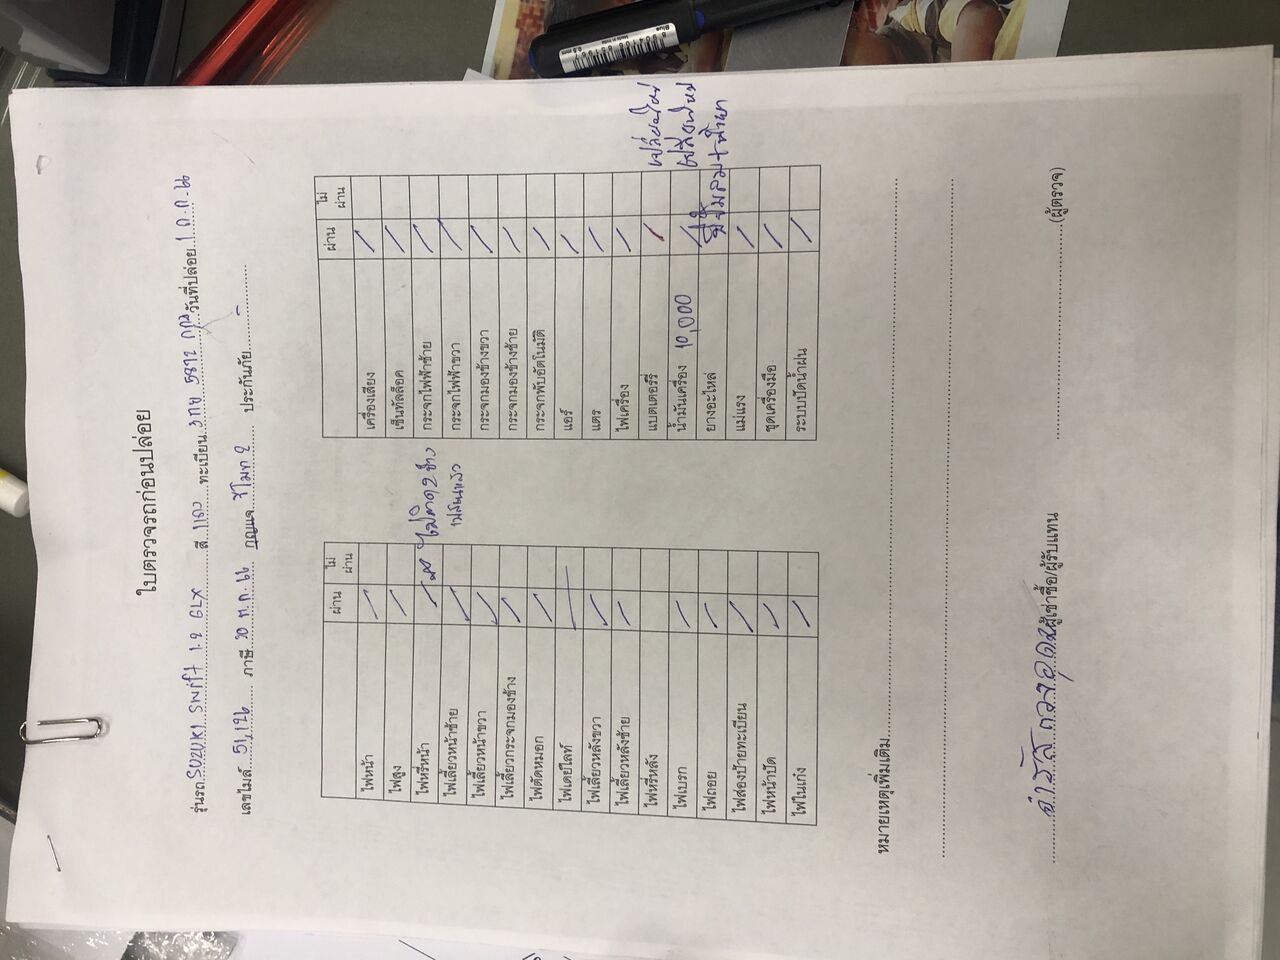 ใบตรวจรถก่อนปล่อย
รุ่นรถ SUZUKI SWIFT 1.2 GLX สี แดง ทะเบียน 5872 วันที่ปล่อย 1 ก.ค. 66
เลขไมล์ 51,126 ภาษี 30 พ.ค. 66 กุญแจ รีโมท 2 ประกันภัย -
ผ่าน ไม่ผ่าน
ไฟหน้า /
ไฟสูง /
ไฟหรี่หน้า / ไม่ติด 2 ข้าง
เปลี่ยนแล้ว
ไฟเลี้ยวหน้าซ้าย /
ไฟเลี้ยวหน้าขวา /
ไฟเลี้ยวกระจกมองข้าง /
ไฟตัดหมอก /
ไฟเดย์ไลท์
ไฟเลี้ยวหลังขวา /
ไฟเลี้ยวหลังซ้าย /
ไฟหรี่หลัง
ไฟเบรก /
ไฟถอย /
ไฟส่องป้ายทะเบียน /
ไฟหน้าปัด /
ไฟในเก๋ง /
ผ่าน ไม่ผ่าน
เครื่องเสียง /
เซ็นทัลล็อค /
กระจกไฟฟ้าซ้าย /
กระจกไฟฟ้าขวา /
กระจกมองข้างขวา /
กระจกมองข้างซ้าย /
กระจกพับอัตโนมัติ /
แอร์ /
แตร /
ไฟเครื่อง /
แบตเตอรรี่ / เปลี่ยนใหม่
น้ำมันเครื่อง 10,000 / เปลี่ยนใหม่
ยางอะไหล่
แม่แรง /
ชุดเครื่องมือ /
ระบบปัดน้ำฝน /
หมายเหตุเพิ่มเติม
ผู้เช่าซื้อ/ผู้รับแทน
(ผู้ตรวจ)
Blue
Made in India
0.5 mm